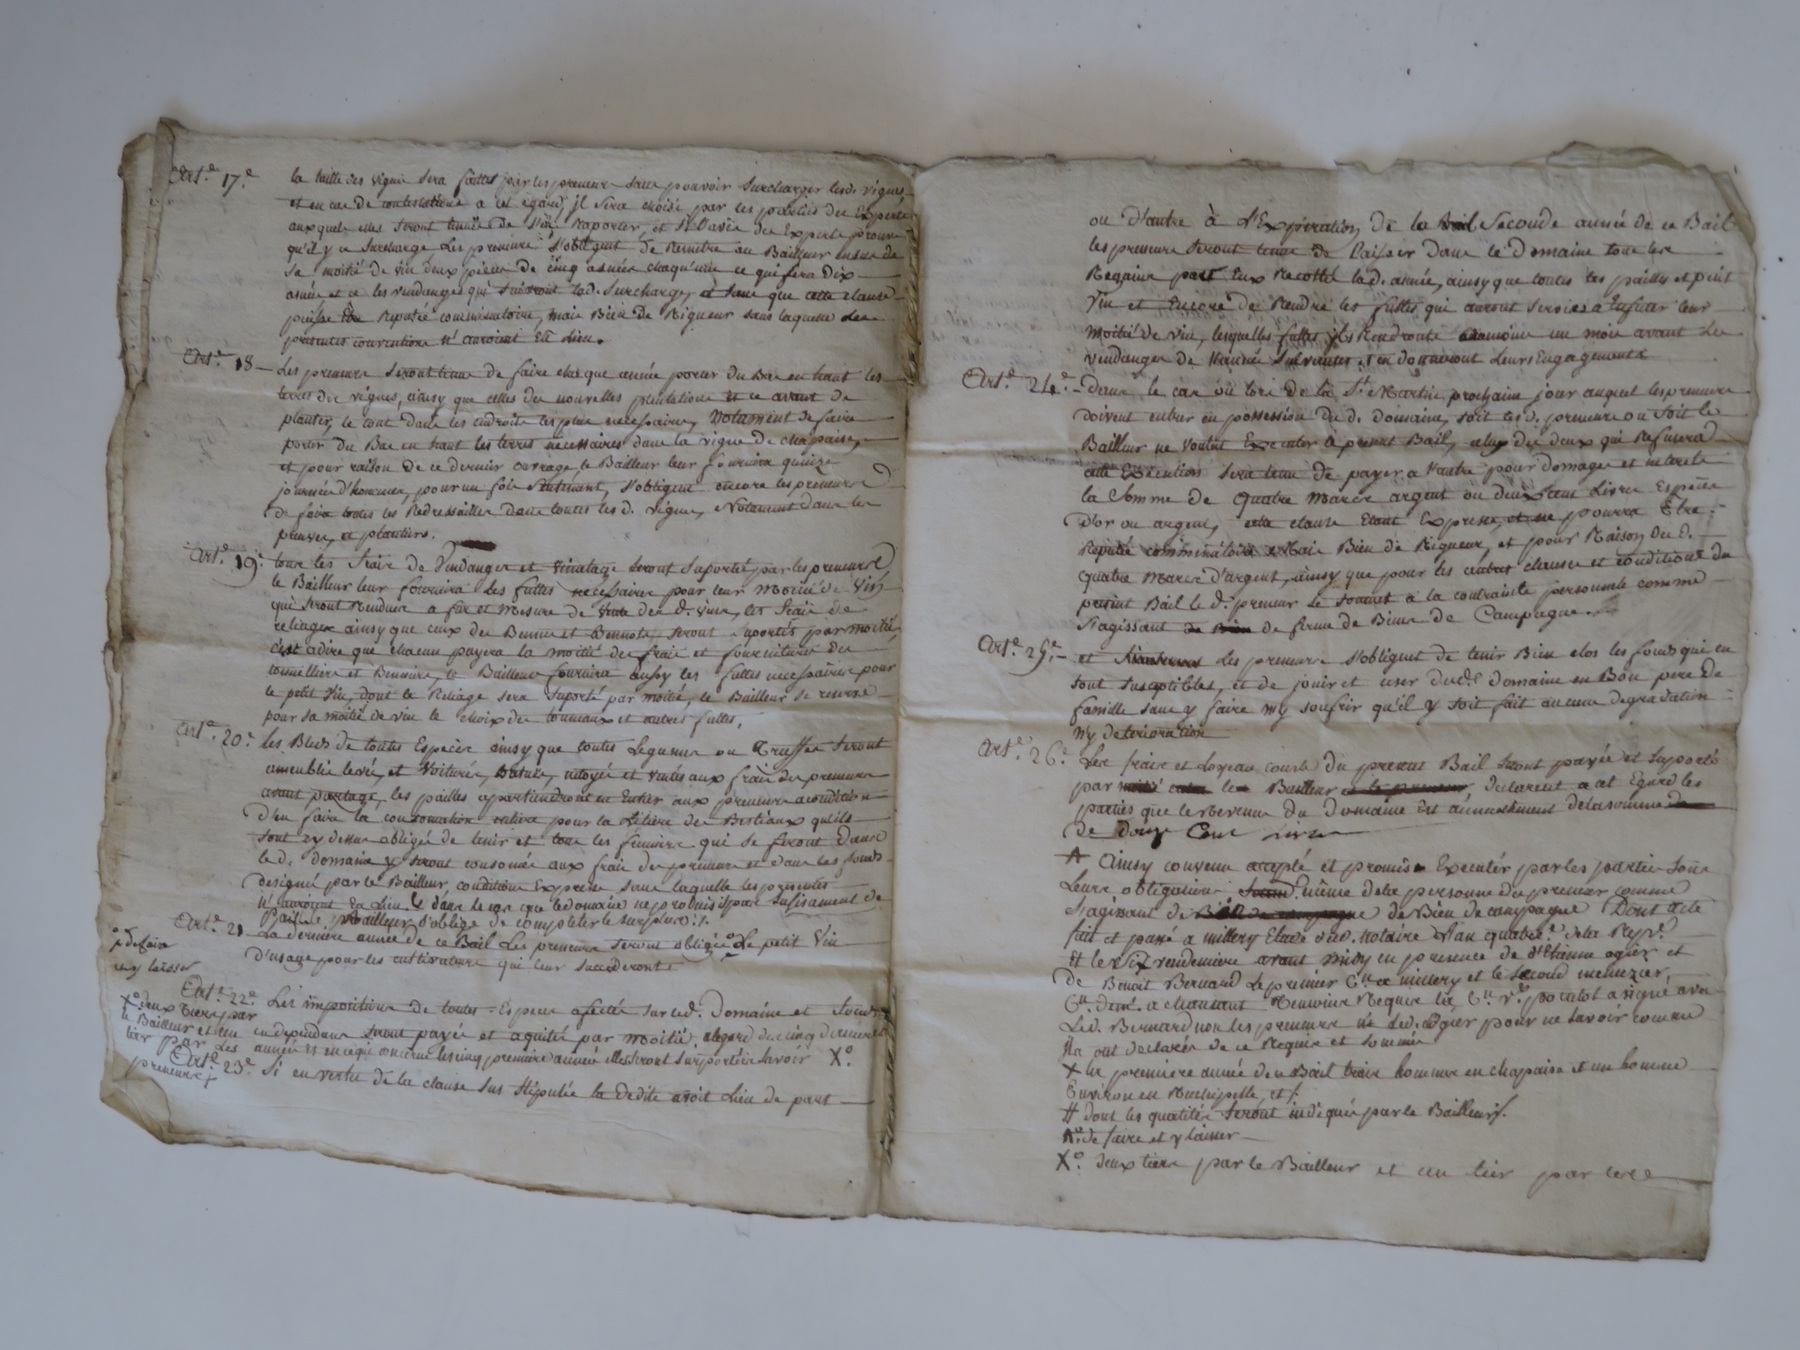 Art.e 17.e la taille des vignes sera faittes par les preneurs sans pouvoir surcharger lesd. vignes
et en cas de contestations a cet égard, jl sera choisi par les parties des Experts
auxquels elles seront tenües de s'en Raporter, et si l'avis des Experts prouve
qu'il y a surcharge les preneurs s'obligent de Remettre au Bailleur en sus de
sa moitié de vin deux pièces de cinq asnées chaqu'une ce qui fera dix
asnées et ce les vendanges qui suivront lad. surcharge, et sans que cette clause
puisse être Reputée comminatoire, mais Bien De Rigueur sans laquelle les
presentes conventions n'auroient Eü Lieu.
Art.e 18 – Les preneurs seront tenus de faire chaque année porter du Bas en haut les
terres des vignes, ainsy que celles des nouvelles plantations et ce avant de
planter, le tout dans les endroits les plus necessaires, Notament de faire
porter du Bas en haut les terres necessaires dans la vigne de chapaise,
et pour raison de ce dernier ouvrage le Bailleur leur fournira quinze
journées d'hommes, pour une fois seulement, s'obligent encore les preneurs
de faire toutes les Redressailles dans toutes les d. vignes, Notament dans les
et plantiers.
Art.e 19.e tous les frais de Vendanges et vinatage seront suportés par les preneurs
le Bailleur leur fournira les futtes necessaires pour leur moitié de Vin
qui seront Rendues a fur et mesure de vente des d. vins, les frais de
reliages ainsy que ceux des Bennes et Bennots seront suportés par moitié,
c'est adire que chacun payera la moitié des frais et fournitures du
tonnellier et Bennier, le Bailleur fournira aussy les futtes necessaires pour
le petit vin, dont le Reliage sera suporté par moitié, le Bailleur se reserve
pour sa moitié de vin le choix des tonneaux et autres futtes.
Art.e 20.e les Bleds de toutes Espèces ainsy que toutes Legumes ou Truffes seront
levés, et voiturés, Batus, nétoyés et vanés aux frais des preneurs
avant partage, les pailles apartiendront en Entier aux preneurs a condition
d'en faire la consomation entière pour la Litière des Bestiaux qu'ils
sont cy dessus obligés de tenir et tous les fumiers qui se feront dans
le d. domaine y seront consomés aux frais des preneurs et dans les fonds
designés par le Bailleur, condition Expresse sans laquelle les presentes
n'auroient Eü Lieu & dans le cas que le domaine ne produisit pas sufisament de
Paille le Bailleur s'oblige de completter le surplus ./.
Art.e 21 La dernière année de ce Bail Les preneurs seront obligés o. Le petit Vin
d'usage pour les cultivateurs qui leur succederont
o. de faire
et y laisser
Art.e 22.e Les impositions de toutes Especes afectés sur led. Domaine et fonds
en dependans seront payés et aquités par moitié, a legard des cinq dernieres
années et en ce qui concerne les cinq premieres années elles seront suportées savoir X.o
X.o deux tiers par
le Bailleur et un
tier par Les
preneurs
Art.e 23.e Si en vertu de la clause sus stipulée la dedite avoit Lieu de part
ou d'autre à l'Expiration de la seconde année de ce Bail
les preneurs seront tenus de laisser dans le Domaine tous les
Regains par Eux Recolté lad. année, ainsy que toutes les pailles et petit
Vin et Encore de Rendre les futtes qui auront servies a Enfutter leur
moitié de vin, lesquelles futtes ils Rendront au moins un mois avant les
vendanges de l'année suivantes
Art.e 24.e – dans le cas où lors de la S.t Martin prochain jour auquel les preneurs
doivent entrer en possession du d. Domaine, soit les d. preneurs ou soit le
Bailleur ne voulut Executer le present Bail, celuy des deux qui Refusera
cette Execution sera tenu de payer a l'autre pour domages et interets
la somme de quatre Marcs argent ou deux cent Livres Especes
d'or ou argent, cette clause Etant Expresse, et ne pourra Etre
Reputée comminatoire Mais Bien de Rigueur, et pour Raison des d.
quatre Marcs d'argent, ainsy que pour les autres clauses et conditions du
present Bail le d. preneur se soumet a la contrainte personnelle comme
s'agissant de ferme de Biens de Campagne.
Art.e 25.e – et Les preneurs s'obligent de tenir Bien clos les fonds qui en
sont susceptibles, et de jouir et user dud. domaine en Bon pere de
famille sans y faire ny soufrir qu'il y soit fait aucune degradation
n'y deterioration
Art.e 26.e Les fraix et Loyeaux couts du present Bail seront payés et suportés
par le Bailleur declarent a cet Egard les
parties que le Revenu du Domaine Est annuellement de la somme
de Douze Cent Livres
Ainsy convenu accepté et promis Executér par les parties sous
Leurs obligations même de la personne du preneur comme
s'agissant de de Bien de campagne Dont acte
fait et passé a millery Etude dud. Notaire L'an quatre.e de la Rep.e
& le six vendemiaire avant midy en presence de s.r Etienne ogier et
de Benoit Bernard Le premier C.en a millery et le second menuzier
C.en dem.t a chassant
Led. Bernard non les preneurs ni Led. Ogier pour ne savoir comme
ils ont declarés de ce Requis et sommés
X la premiere année de ce Bail trois hommes en chapaise et un homme
Environ en
# dont les quatités seront indiqués par le Bailleur ./.
o. de faire et y laisser
X.o deux tiers par le Bailleur et un tier par les